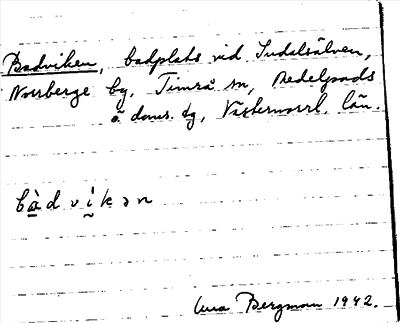 Badviken, badplats vid Indalsälven,
Norrberge by, Timrå sn, Medelpads
ö. doms. tg, Västernorrl. län.
bàdvikən
Bergman 1942.